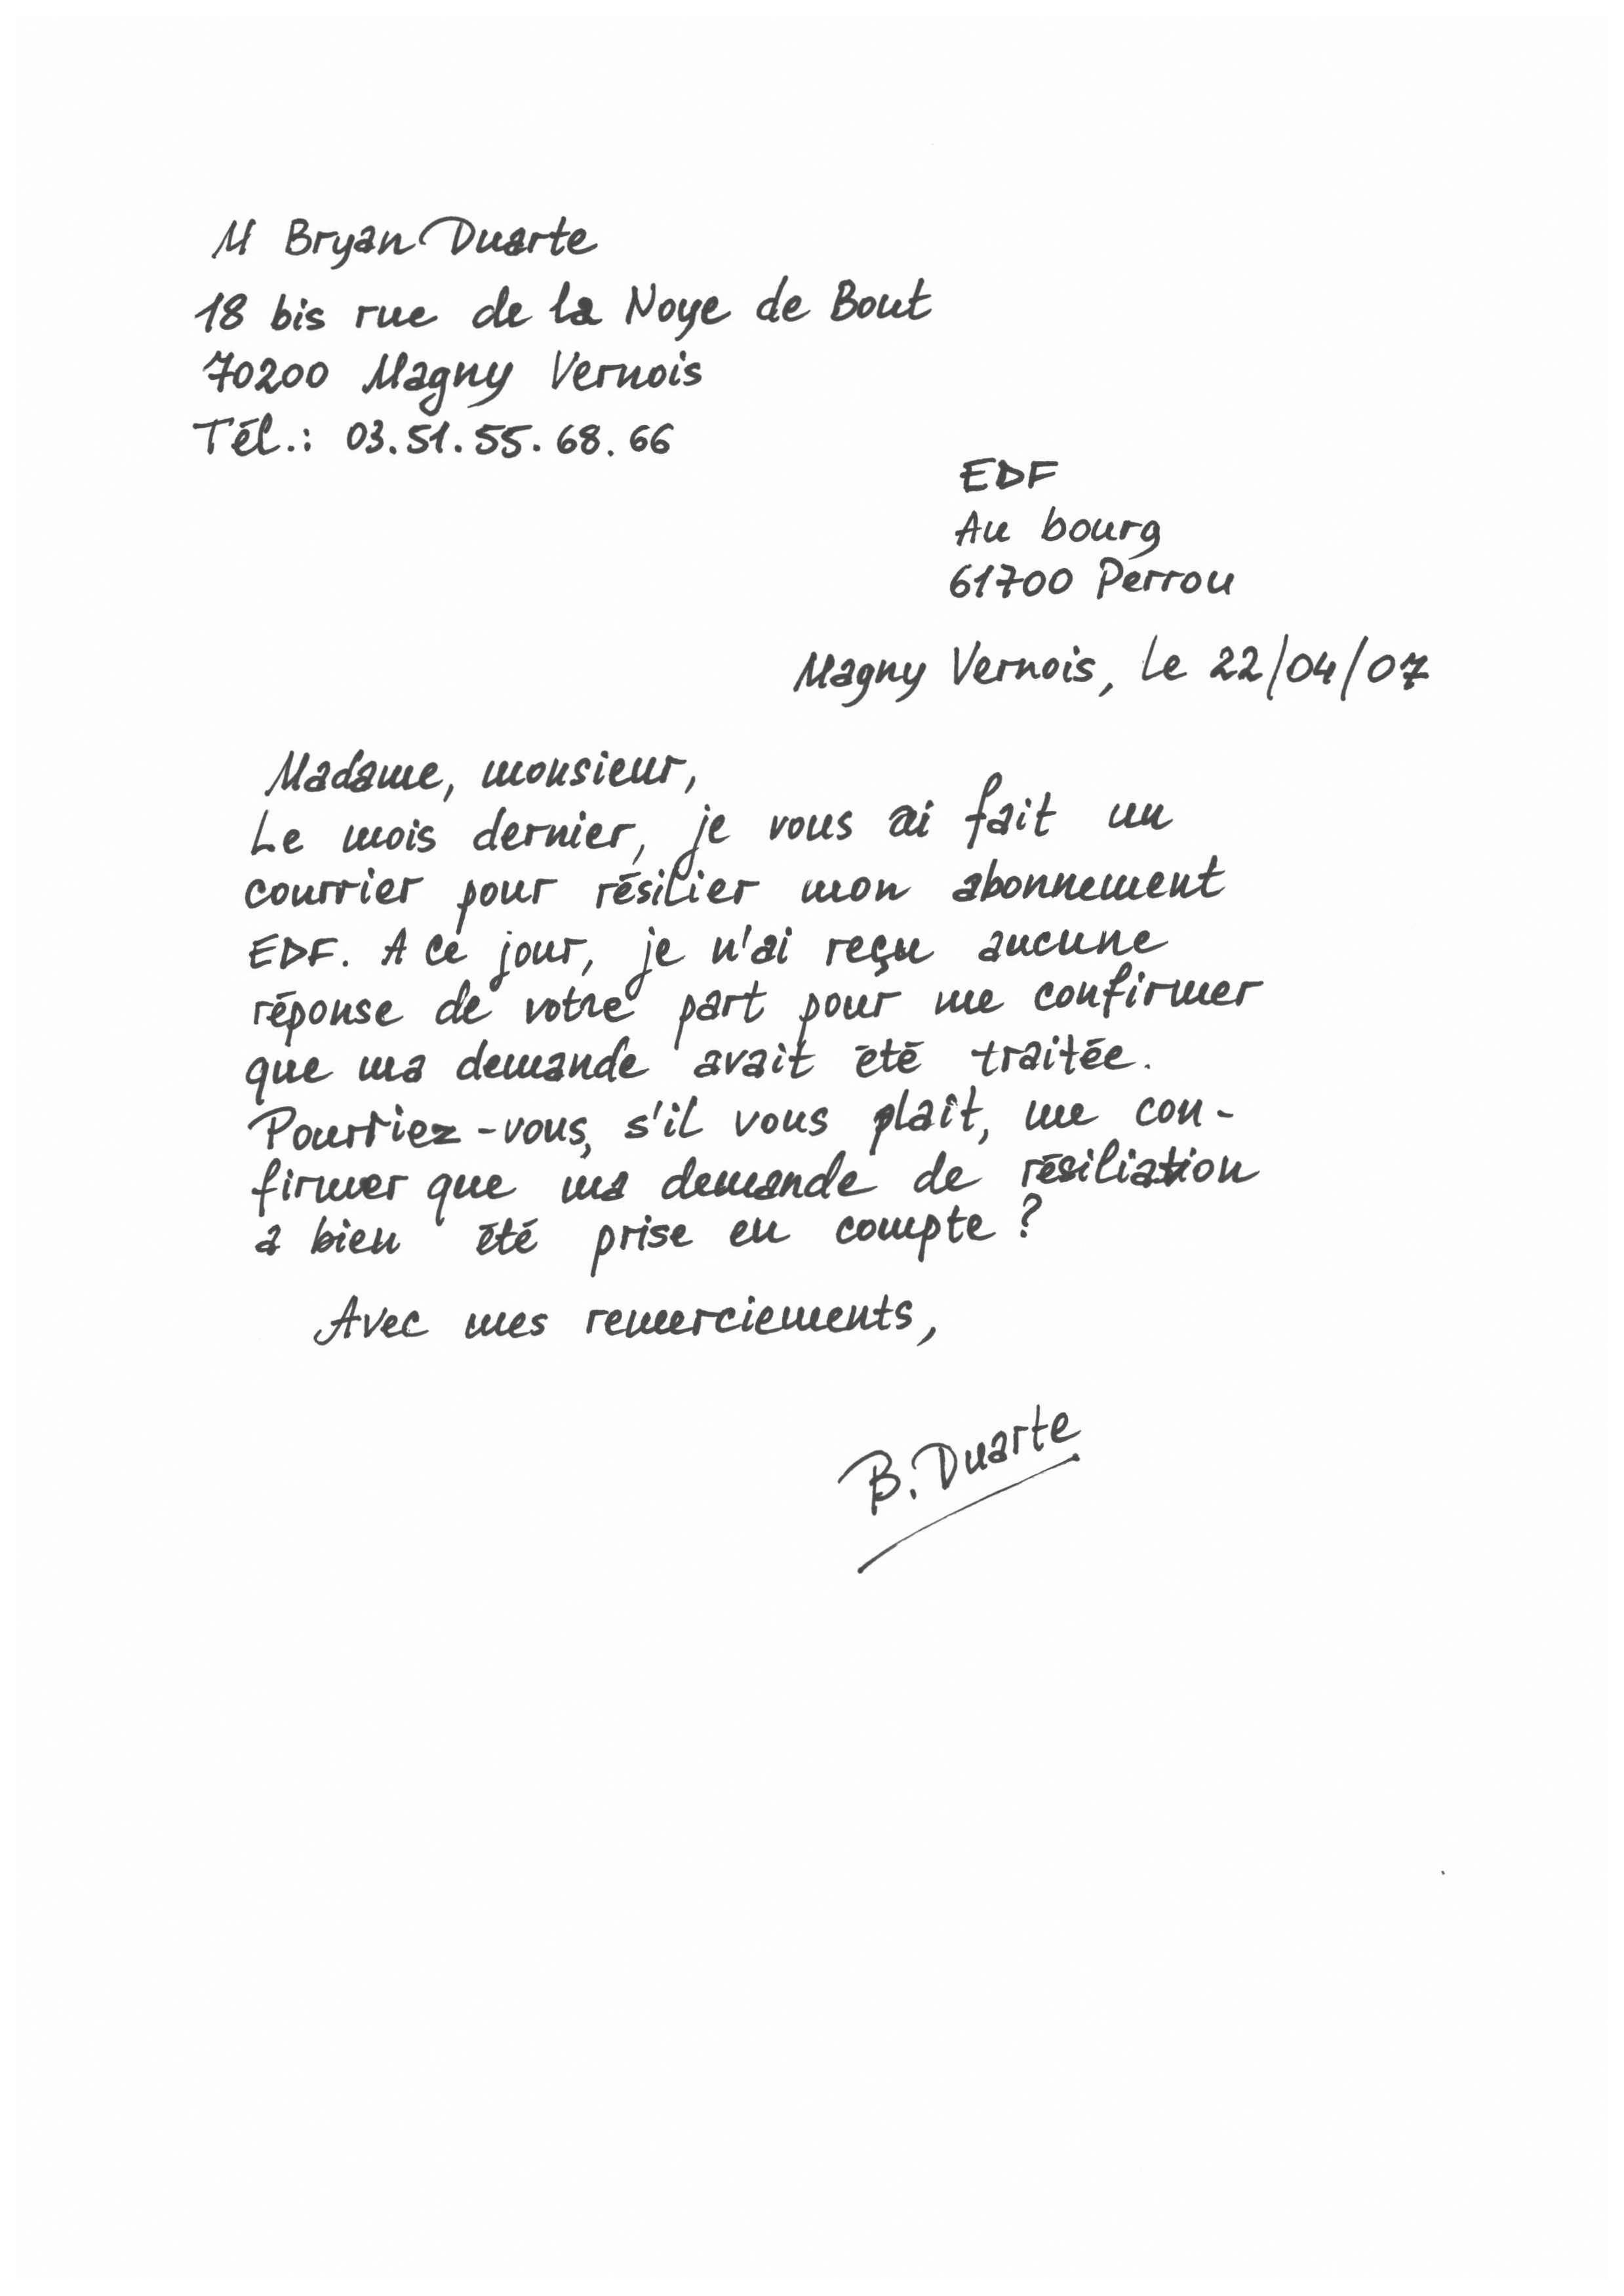 M Bryan Duarte
18 bis rue de la Noye de Bout
70200 Magny Vernois
Tél.: 03.51.55.68.66
EDF
Au bourg
61700 Perrou
Magny Vernois, le 22/04/07
Madame, monsieur,
Le mois dernier, je vous ai fait un
courrier pour résilier mon abonnement
EDF. A ce jour, je n'ai reçu aucune
réponse de votre part pour me confirmer
que ma demande avait été traitée.
Pourriez-vous, s'il vous plaît, me con-
firmer que ma demande de résiliation
a bien été prise en compte ?
Avec mes remerciements,
B. Duarte